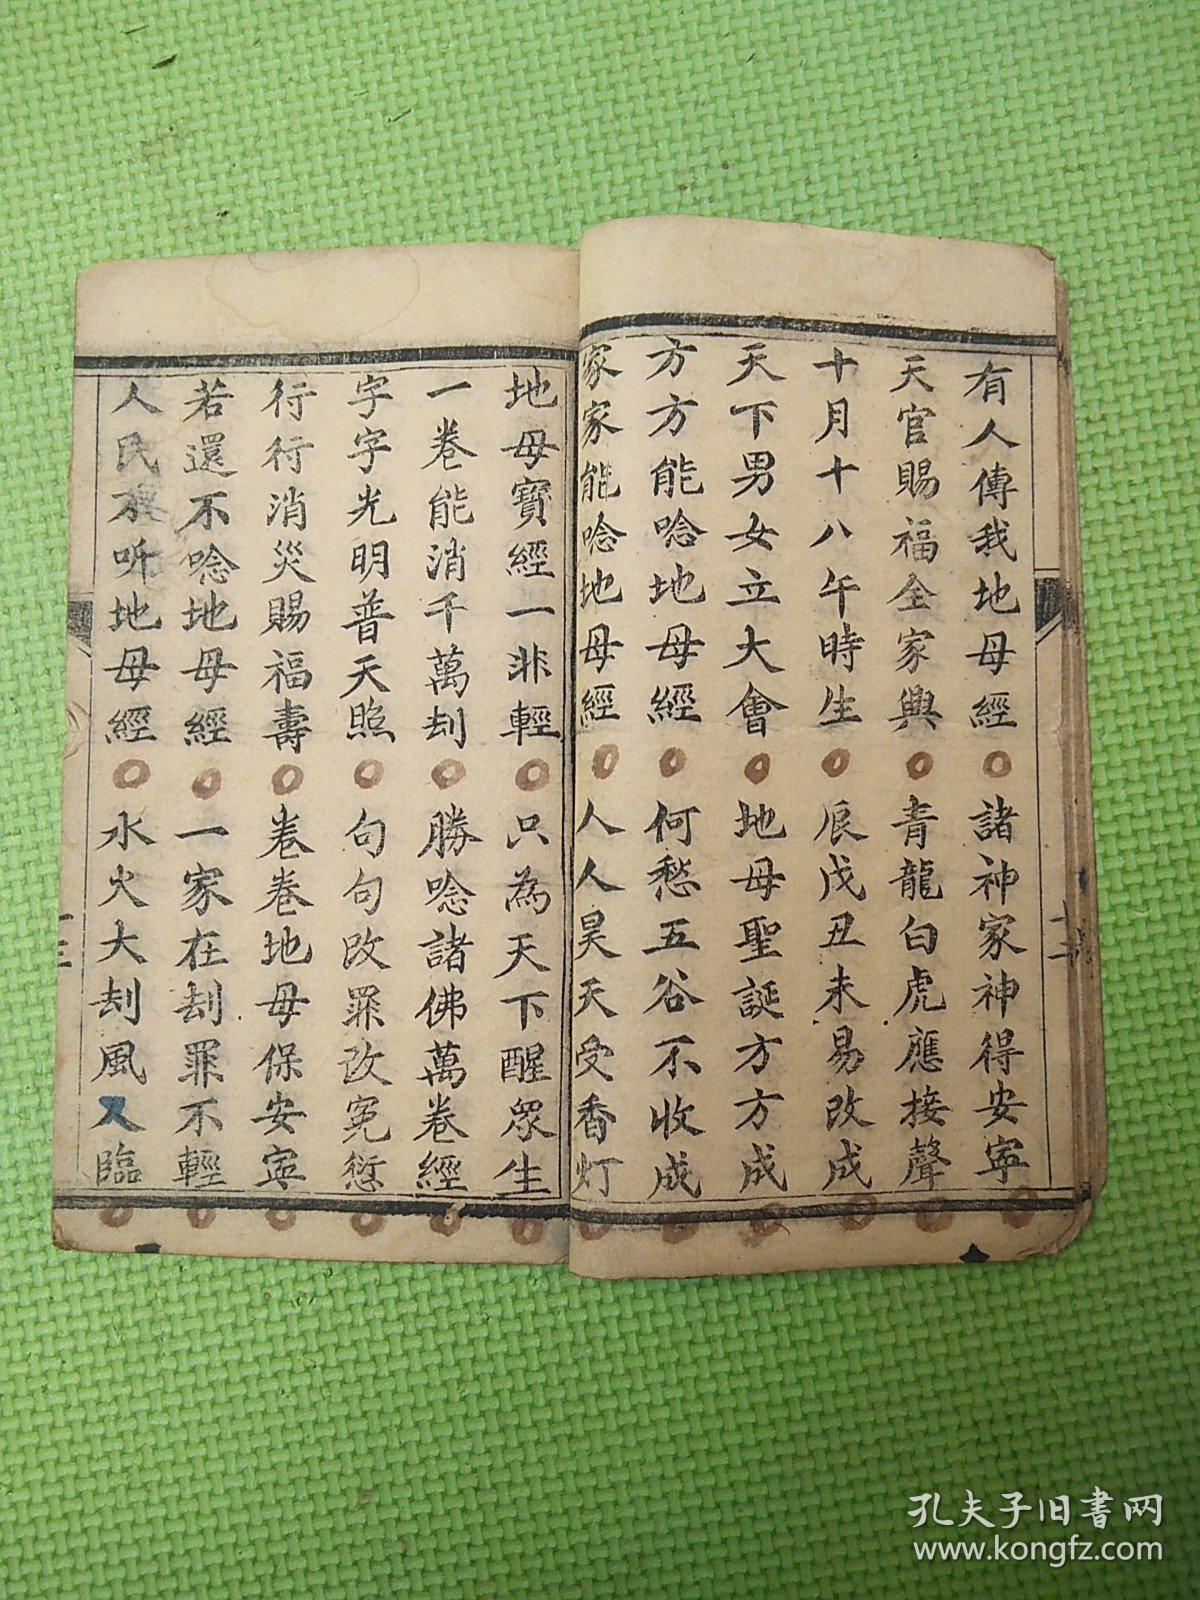 有人傳我地母經○諸神家神得安寧○
天官賜福全家興○青龍白虎應接聲○
十月十八午時生○辰戌丑未易改成○
天下男女立大會○地母聖誕方方成○
方方能唸地母經○何愁五谷不收成○
家家能唸地母經○人人昊天受香灯
地母寶經一非輕○只為天下醒眾生○
一卷能消千萬刦○勝唸諸佛萬卷經○
字字光明普天照○句句改罪改冤愆○
行行消災賜福壽○卷卷地母保安寧○
若還不唸地母經○一家在刦罪不輕○
人民不听地母經○水火大刦風又臨○
孔夫子旧書网
www.kongfz.com